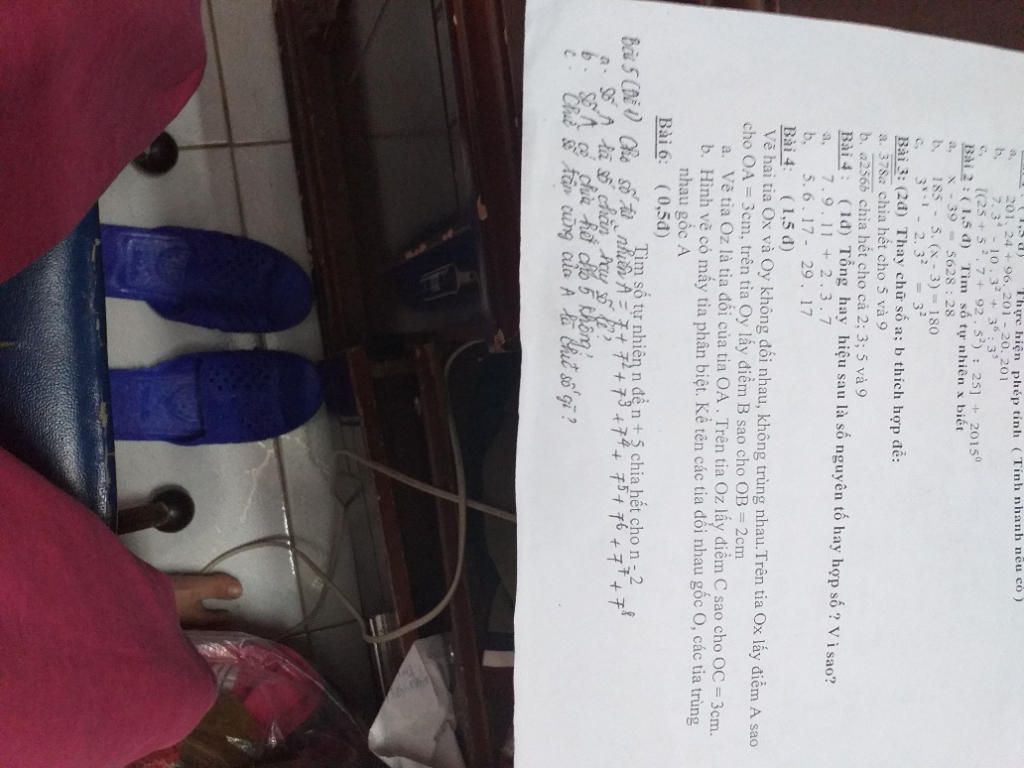 1,5 đ) Thực hiện phép tính ( Tính nhanh nếu có )
a, 201.24 + 96.201 - 20.201
b, 7.3² - 10.3² + 3⁴ : 3³
c, [(25 + 5².7 + 92.5²) : 25] + 2015⁰
Bài 2 : ( 1,5 đ) Tìm số tự nhiên x biết
a, x - 39 = 5628 : 28
b, 185 - 5.(x - 3) = 180
c, 3ˣ⁻¹ - 2 . 3² = 3²
Bài 3: (2đ) Thay chữ số a; b thích hợp để:
a. 378a chia hết cho 5 và 9
b. a256b chia hết cho cả 2; 3; 5 và 9
Bài 4 : ( 1đ) Tổng hay hiệu sau là số nguyên tố hay hợp số ? Vì sao?
a, 7 . 9 . 11 + 2 . 3 . 7
b, 5 . 6 . 17 - 29 . 17
Bài 4: ( 1,5 đ)
Vẽ hai tia Ox và Oy không đối nhau, không trùng nhau.Trên tia Ox lấy điểm A sao
cho OA = 3cm, trên tia Oy lấy điểm B sao cho OB = 2cm
a. Vẽ tia Oz là tia đối của tia OA . Trên tia Oz lấy điểm C sao cho OC = 3cm.
b. Hình vẽ có mấy tia phân biệt. Kể tên các tia đối nhau gốc O, các tia trùng
nhau gốc A
Bài 6: ( 0,5đ)
Tìm số tự nhiên n để n + 5 chia hết cho n - 2
Bài 5 (Đề 1) Cho số tự nhiên A = 7 + 7² + 7³ + 7⁴ + 7⁵ + 7⁶ + 7⁷ + 7⁸
a. Số A là số chẵn hay số lẻ?
b. Số A có chia hết cho 5 không?
c. Chữ số tận cùng của A là chữ số gì?